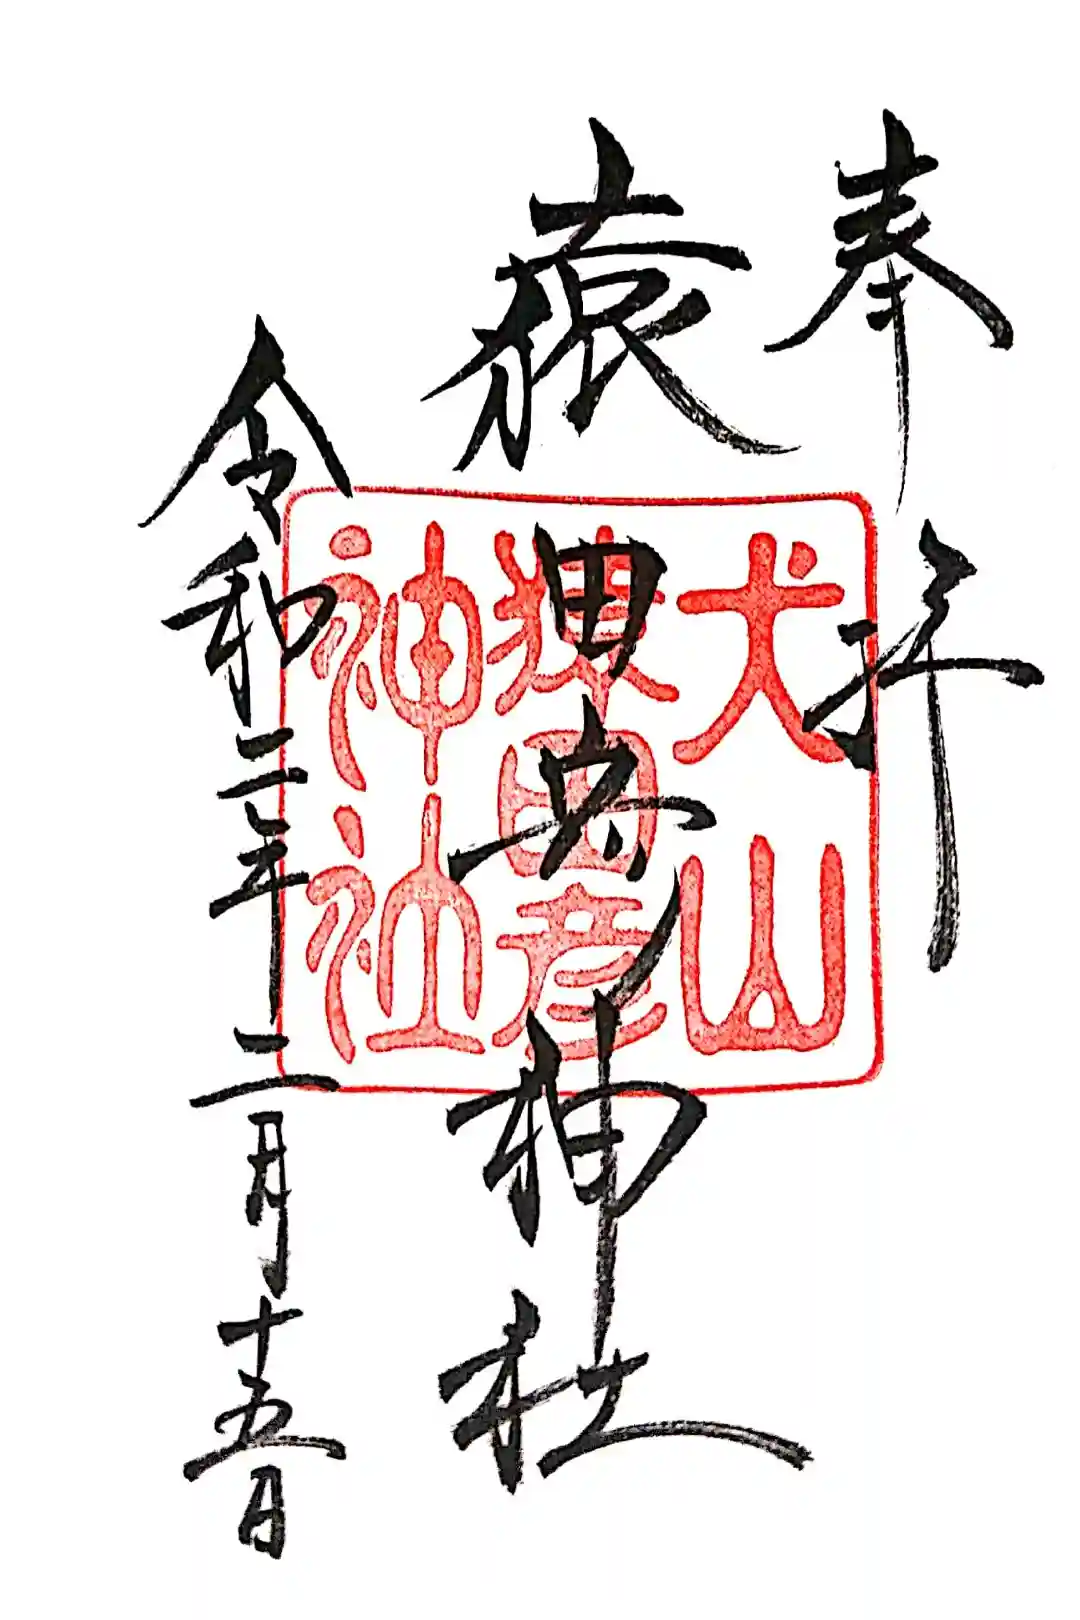 奉拝
猿田彦神社
令和二年二月十五日
犬山
猿田彦
神社